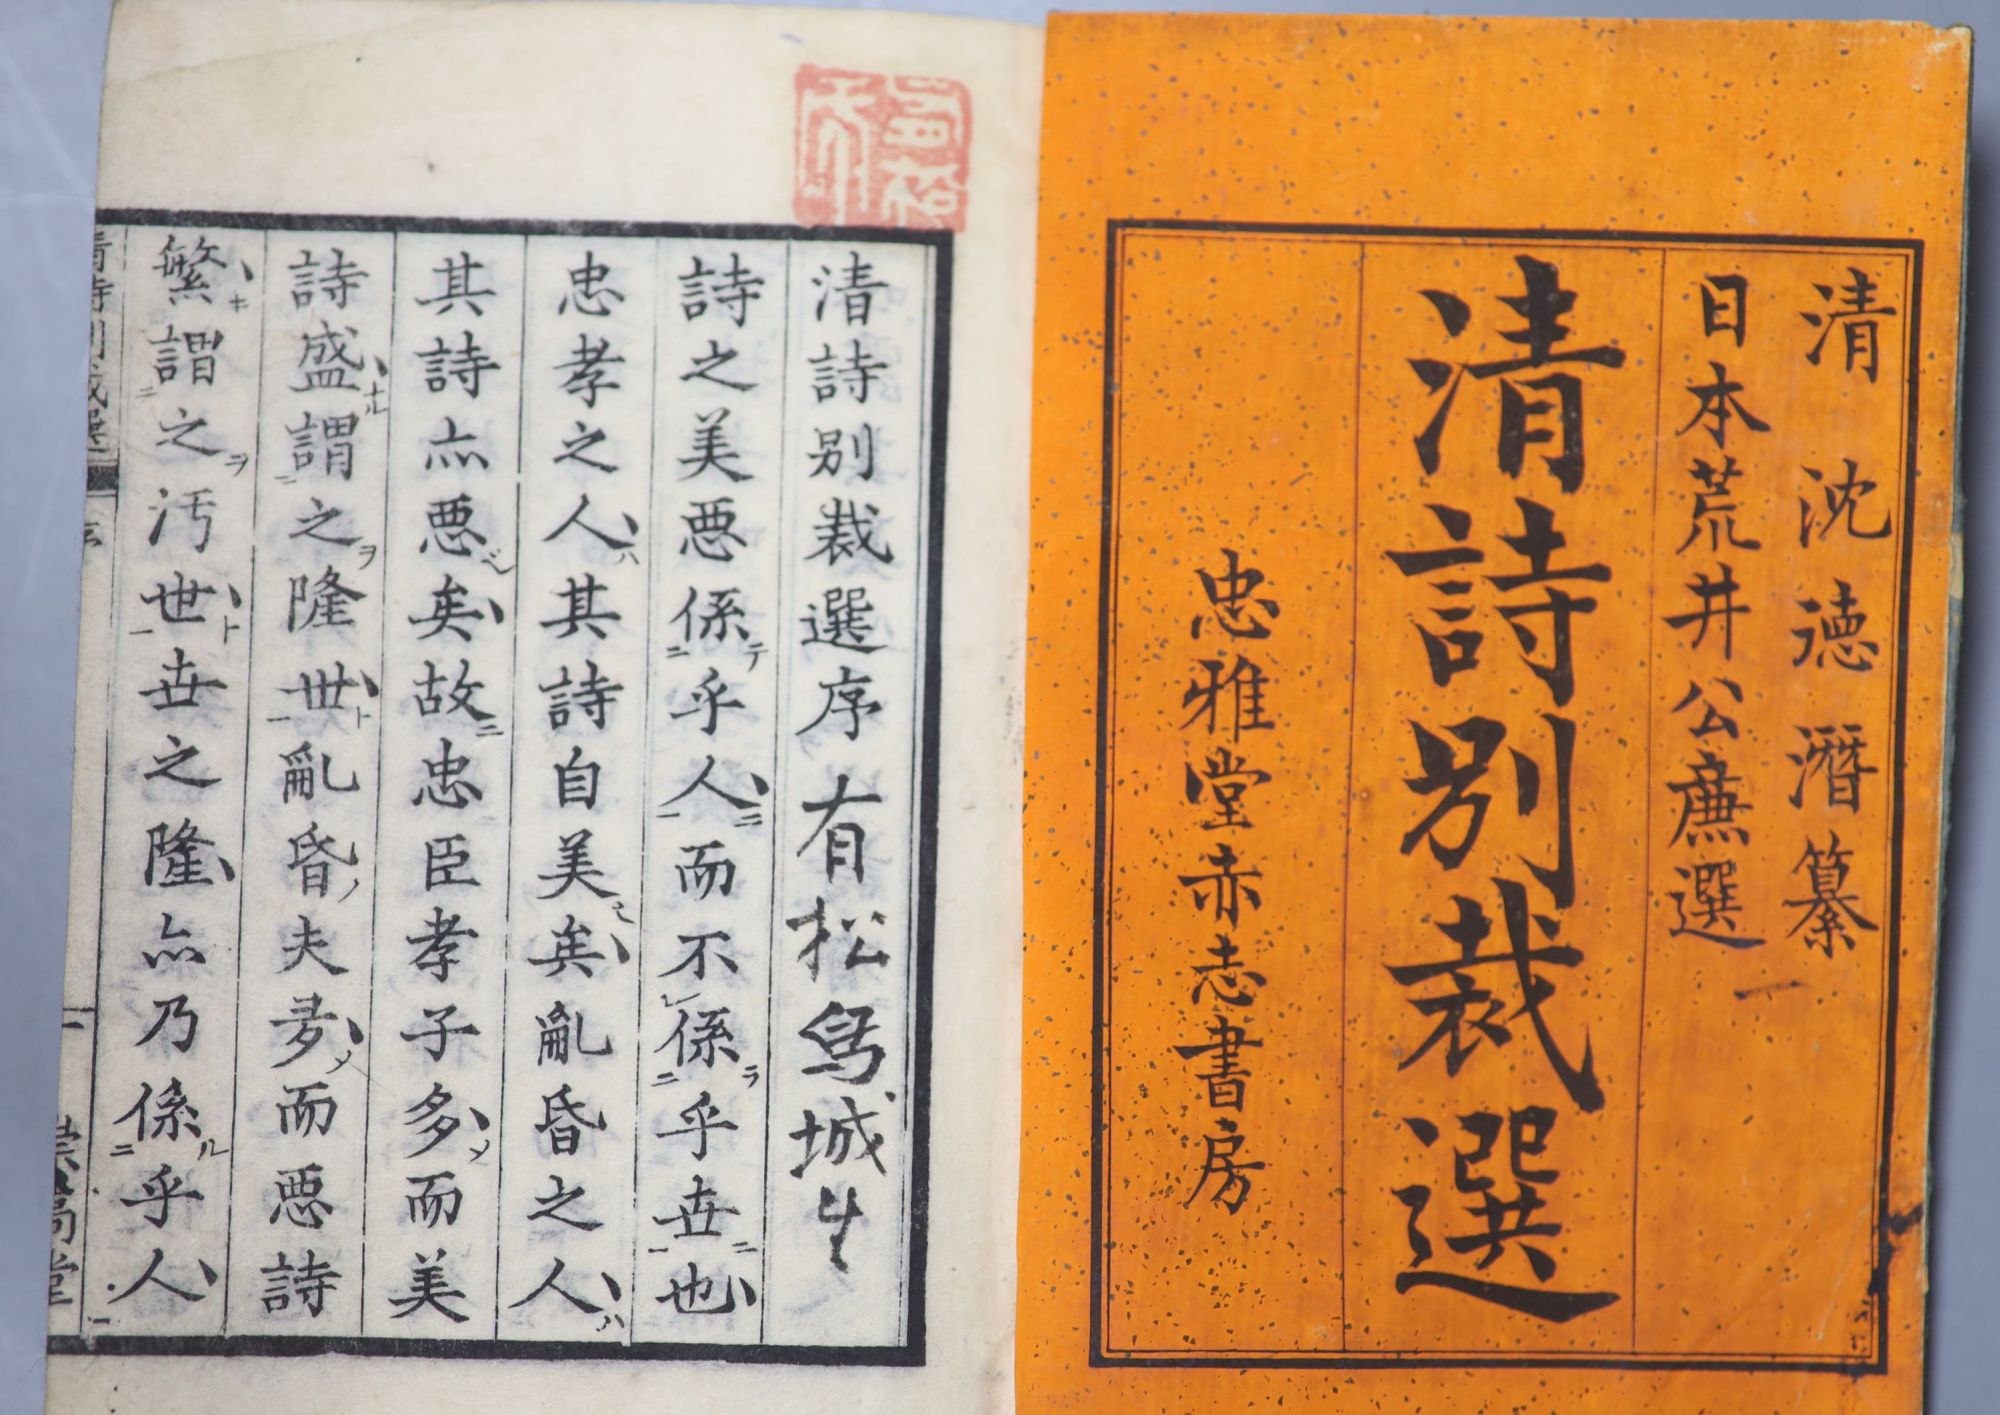 清 沈德潛纂
日本荒井公廉選
清詩別裁選
忠雅堂赤志書房
清詩別裁選序 有松
詩之美惡係ニテ乎人一ニ而不レ係ニラ乎世一ニ也
忠孝之人ハ其詩自美矣亂昏之人ハ
其詩亦惡シ矣故ニ忠臣孝子多メ而美
詩盛ナル謂ニ之ヲ隆世一ト亂昏ノ夫多メ而惡詩
繁キ謂ニ之ヲ汚世一ト世之隆亦乃係ニル乎人
清詩別裁選
序
一